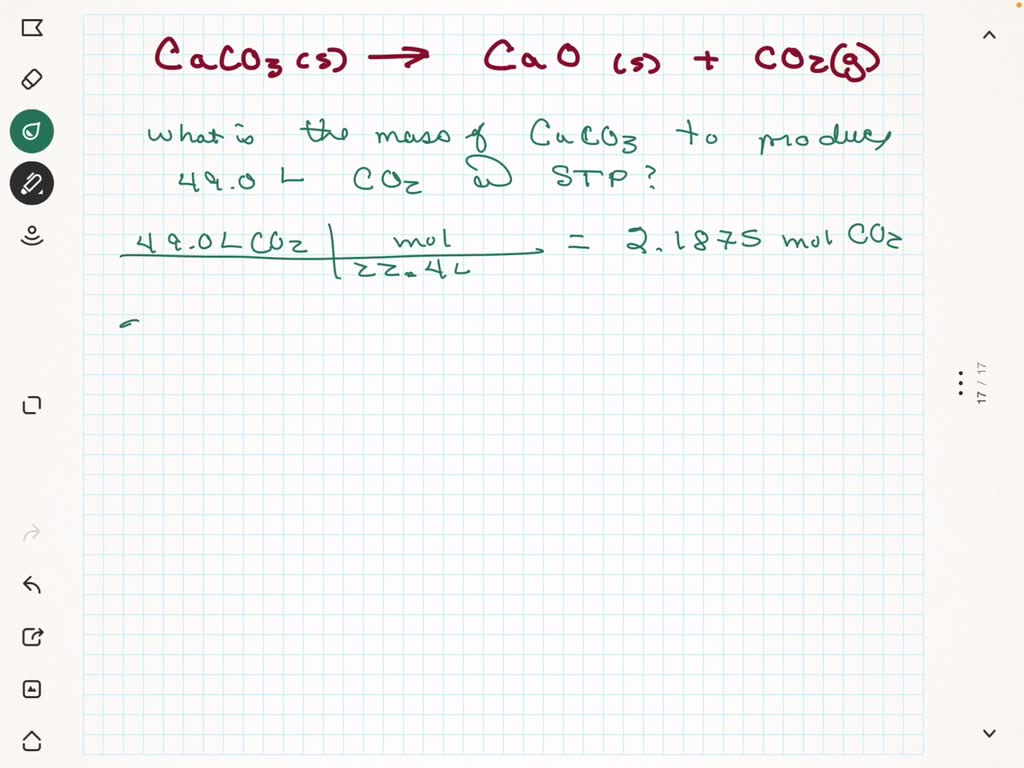 CaCO3(s) → CaO (s) + CO2(g)
what is the mass of CaCO3 to produce
49.0 L CO2 @ STP?
49.0 L CO2 | mol = 2.1875 mol CO2
22.4 L
17 / 17